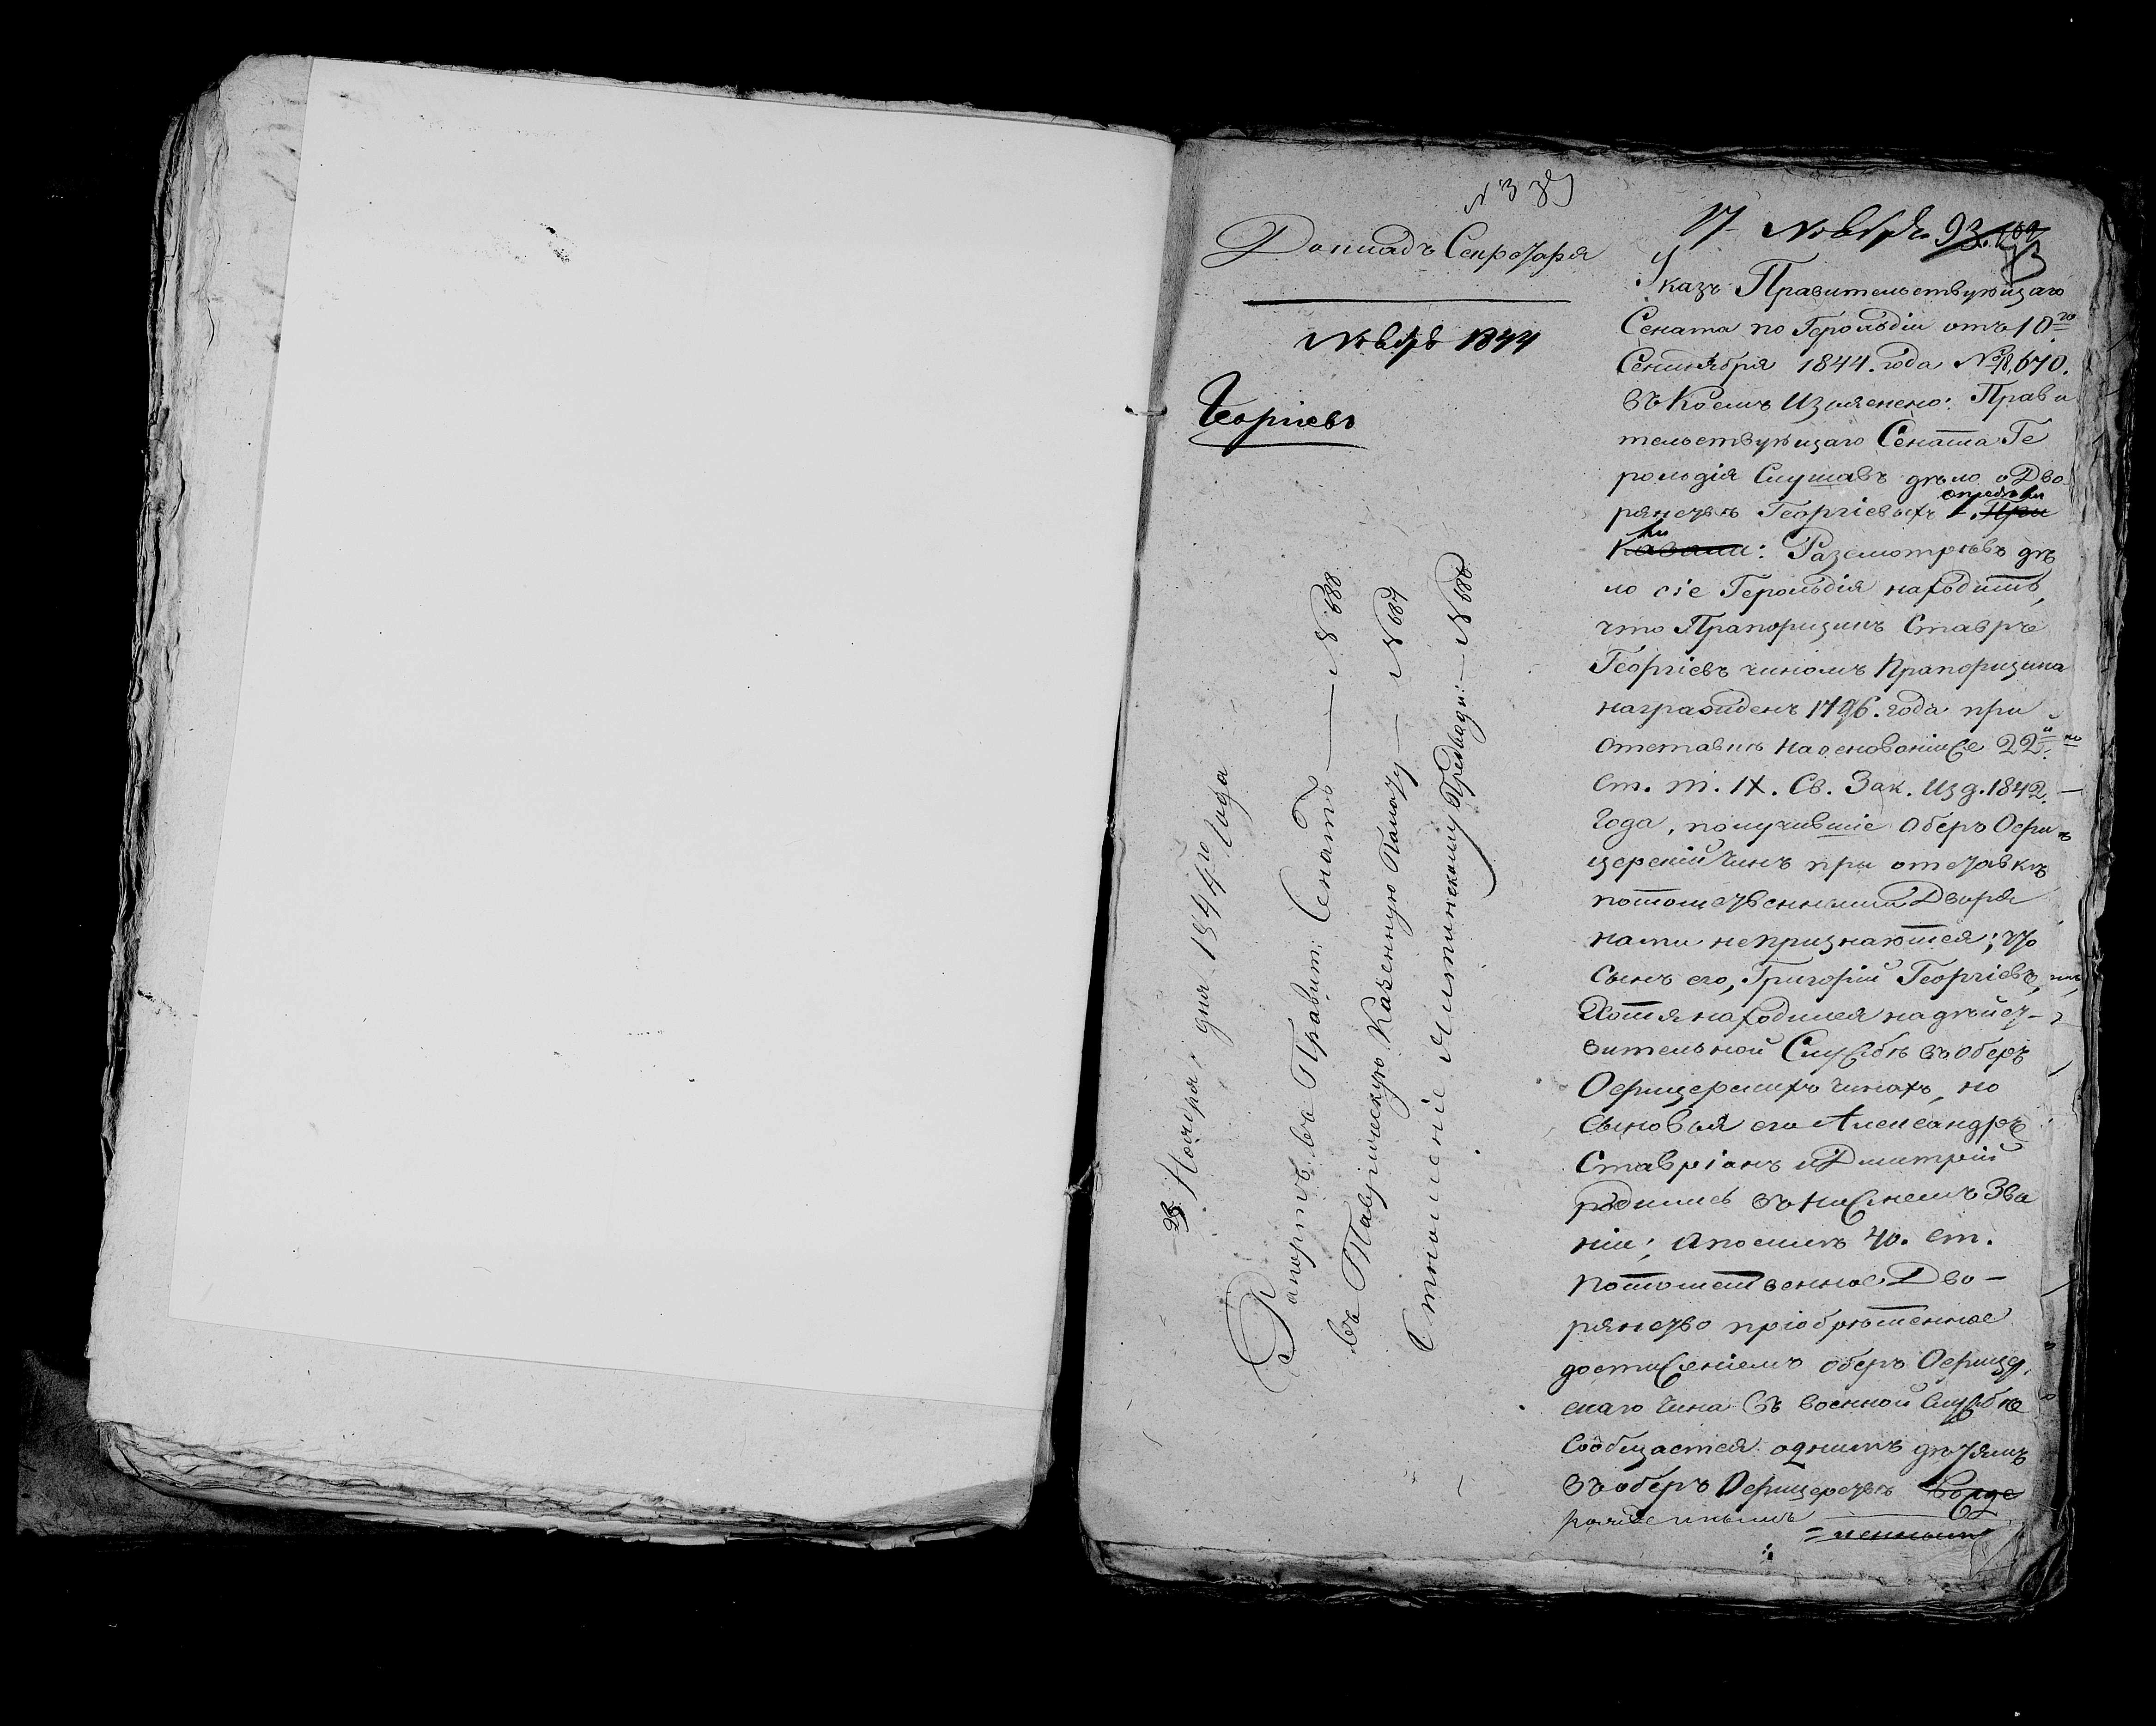 № 389
Докладъ Секретаря
Ноябрь 1844
Георгіевъ
23 Ноября дня 1844го Года
Рапортъ въ Правит: Сенатъ — № 688
въ Таврическую Казенную Палату — № 687
Отношеніе Ялтинскому Предвод: — № 686
17 Ноября 93.
Указъ Правительствующаго
Сената по Герольдіи отъ 10го
Сентября 1844. года №
въ Коемъ Изъяснено: Прави
тельствующаго Сената Ге
рольдія Слушавъ дѣло о Дво
рянствѣ Георгіевыхъ опредѣли
ли: Разсмотрѣвъ дѣ
ло сіе Герольдія находитъ,
что Прапорщикъ Ставръ
Георгіевъ чиномъ Прапорщика
награжденъ 1796. года при
отставкѣ на основаніи же 22й
Ст. т. IX. Св. Зак. Изд. 1842.
Года, получившіе Оберъ Офи
церскій Чинъ при отставкѣ
потомственными Дворя
нами непризнаются; что
Сынъ его, Григорій Георгіевъ,
Хотя находился на дѣйст-
вительной Службѣ въ Оберъ
Офицерскихъ Чинахъ, но
Сыновья его Александръ
Ставріанъ и Дмитрій
родились въ нижнемъ Зва
ніи; а по силѣ 40. ст.
Потомственное Дво-
рянство пріобрѣтенное
достиженіемъ оберъ Офицер.
скаго Чина въ военной Службѣ
Сообщается однимъ дѣтямъ
въ оберъ Офицерствѣ
рожденнымъ